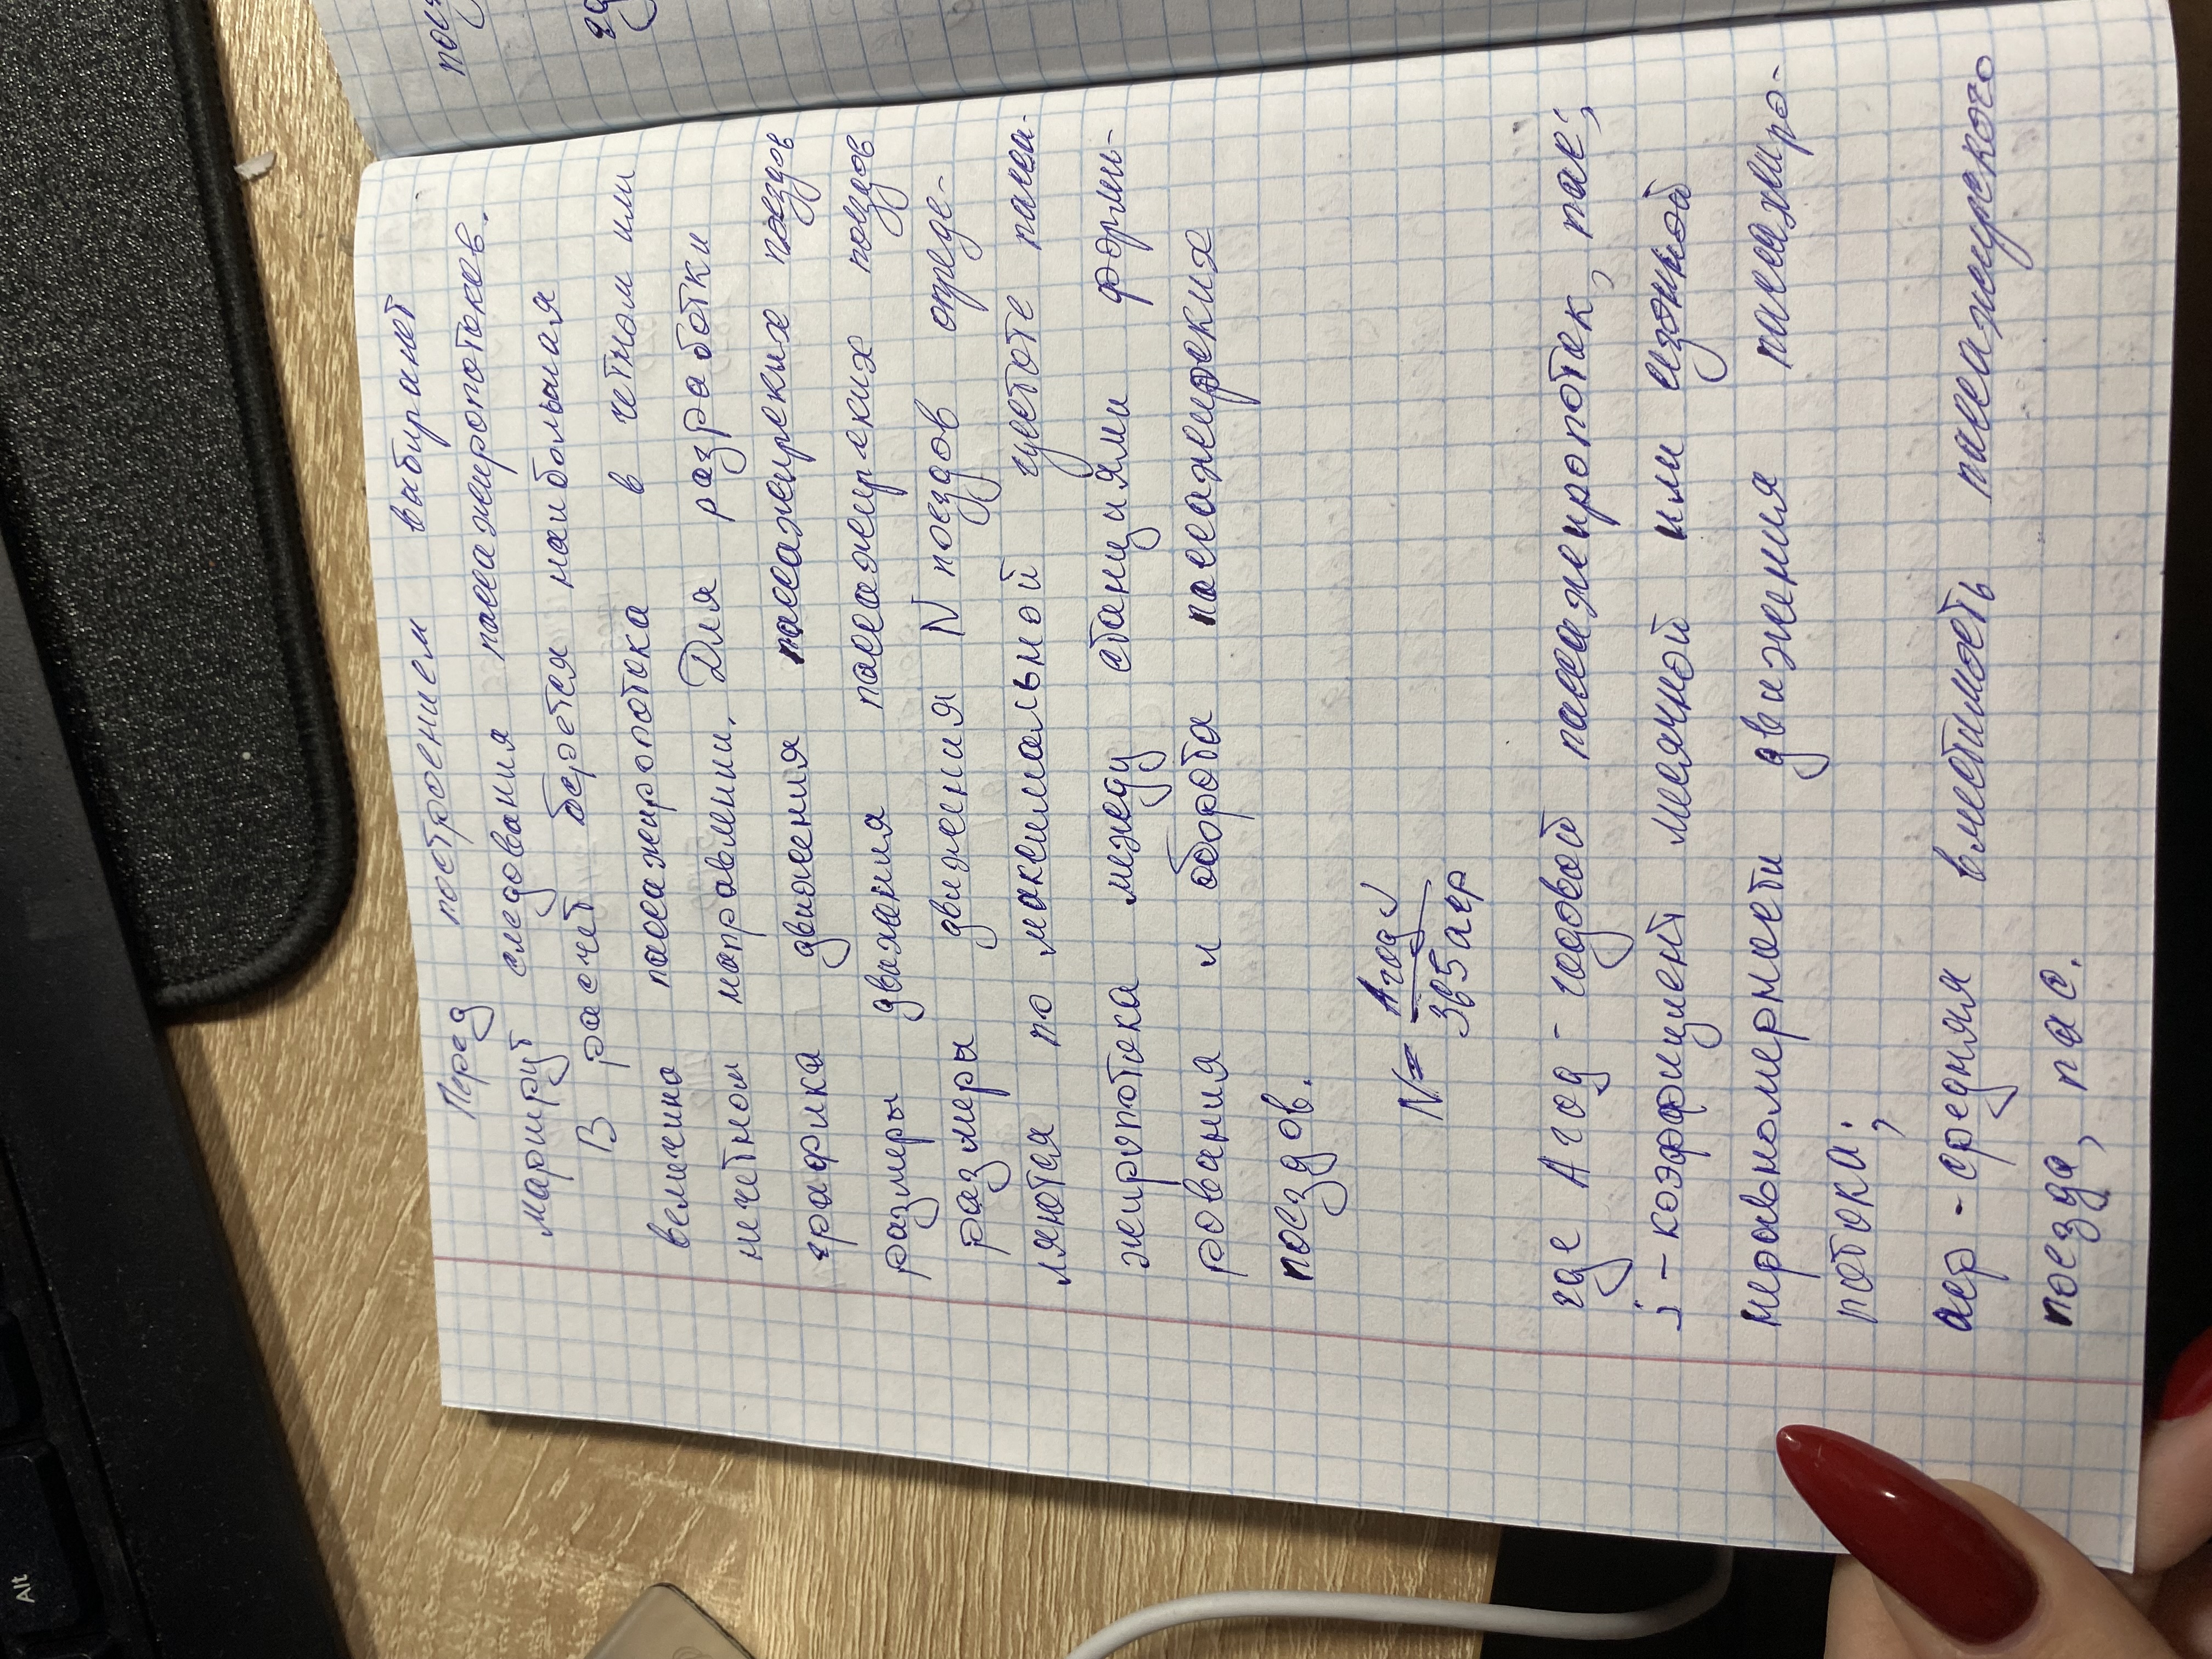 Перед построением выбирает
маршрут следования пассажиропотоков.
В расчет берется наибольшая
величина пассажиропотока в четном или
нечетном направлении. Для разработки
графика движения пассажирских поездов
размеры движения пассажирских поездов
размеры движения N поездов опреде-
ляются по максимальной густоте пасса-
жиропотока между станциями форми-
рования и оборота пассажирских
поездов.
N= Aгод √
365 аср
где Aгод - годовой пассажиропоток, пас;
j - коэффициент месячной или сезонной
неравномерности движения пассажиро-
потока;
аср - средняя вместимость пассажирского
поезда, пас.
Alt